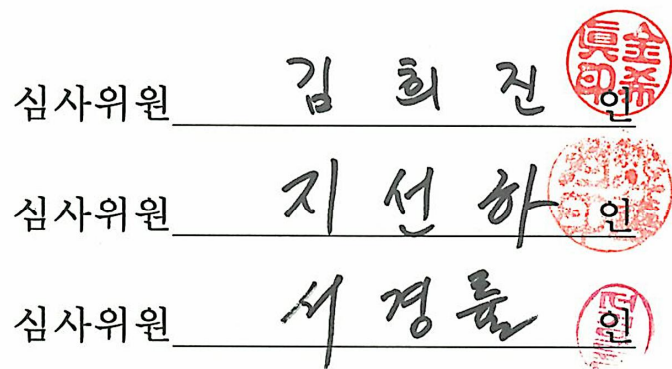 심사위원 김희진 인
심사위원 지선하 인
심사위원 서경률 인